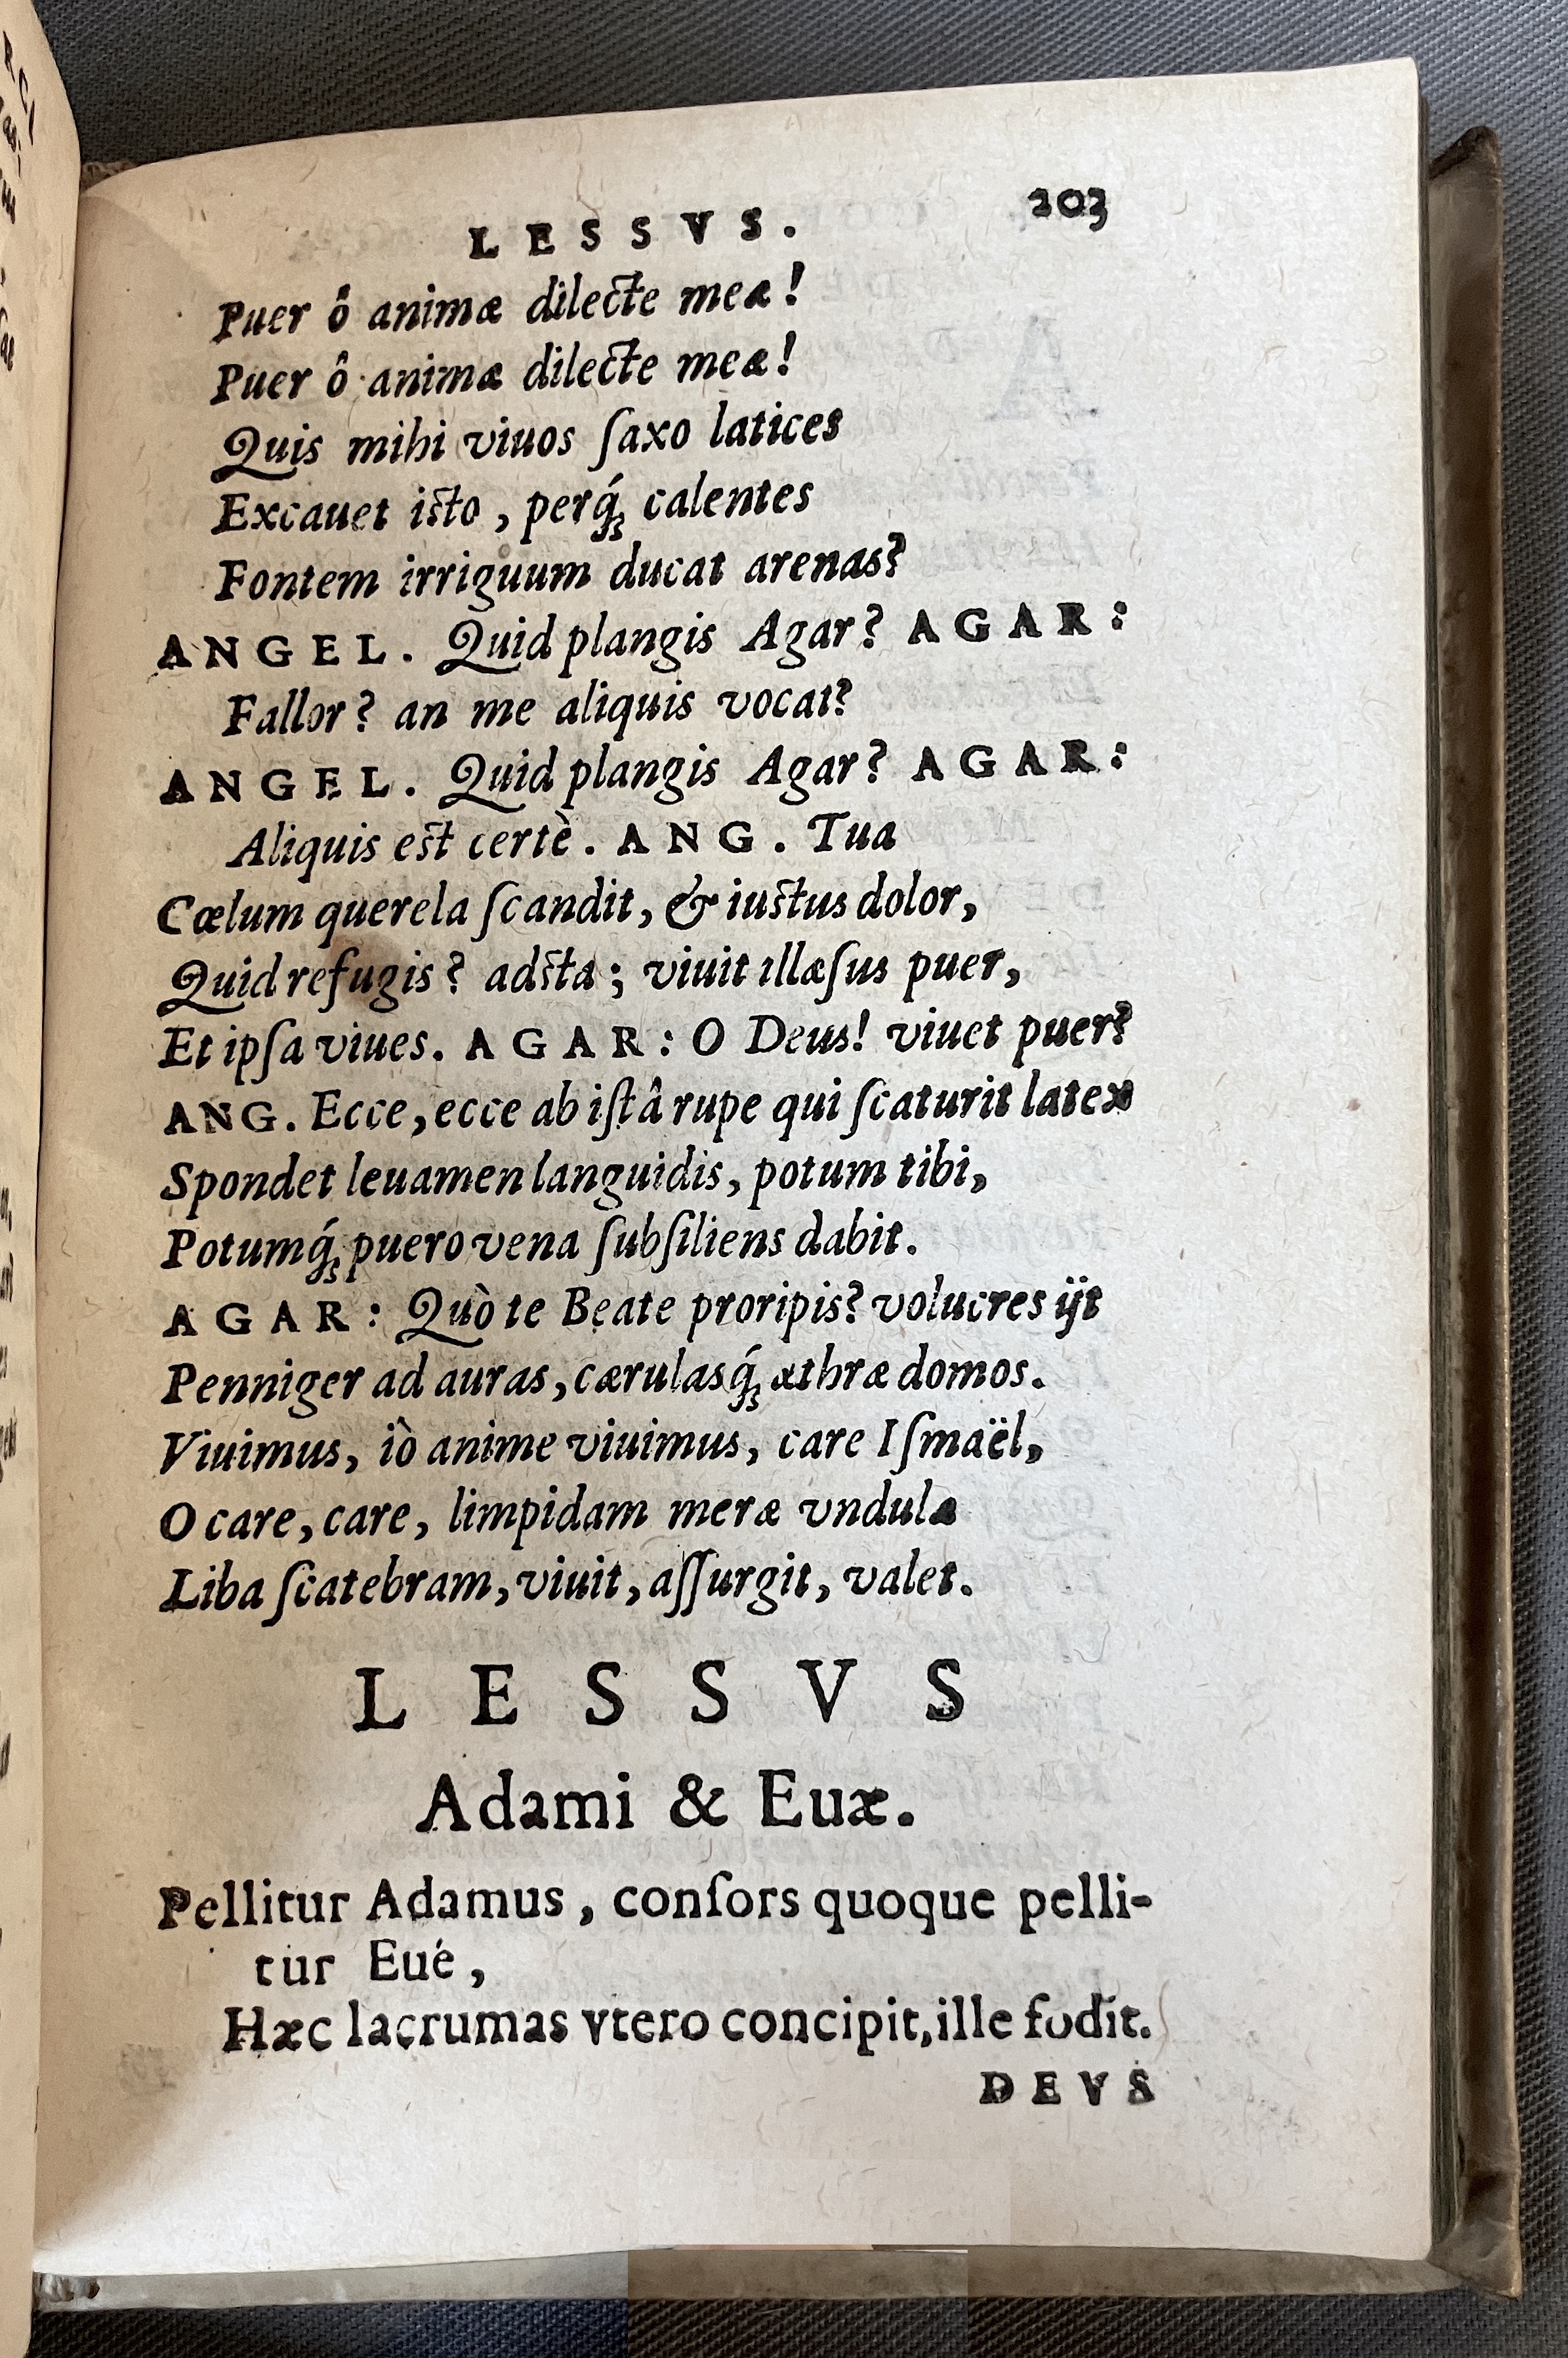 LESSVS. 203
Puer ô animæ dilecte meæ!
Puer ô animæ dilecte meæ!
Quis mihi viuos ſaxo latices
Excauet isto, perq́; calentes
Fontem irriguum ducat arenas?
ANGEL. Quid plangis Agar? AGAR:
Fallor? an me aliquis vocat?
ANGEL. Quid plangis Agar? AGAR:
Aliquis est certè. ANG. Tua
Cœlum querela ſcandit, & iustus dolor,
Quid refugis? adsta; viuit illæſus puer,
Et ipſa viues. AGAR: O Deus! viuet puer?
ANG. Ecce, ecce ab iſtâ rupe qui ſcaturit latex
Spondet leuamen languidis, potum tibi,
Potumq́; puero vena ſubſiliens dabit.
AGAR: Quò te Beate proripis? volucres ijt
Penniger ad auras, cærulasq́; æthræ domos.
Viuimus, iò anime viuimus, care Iſmaël,
O care, care, limpidam meræ vndulæ
Liba ſcatebram, viuit, aſſurgit, valet.
LESSVS
Adami & Euæ.
Pellitur Adamus, conſors quoque pelli-
tur Eué,
Hæc lacrumas vtero concipit, ille fodit.
DEVS